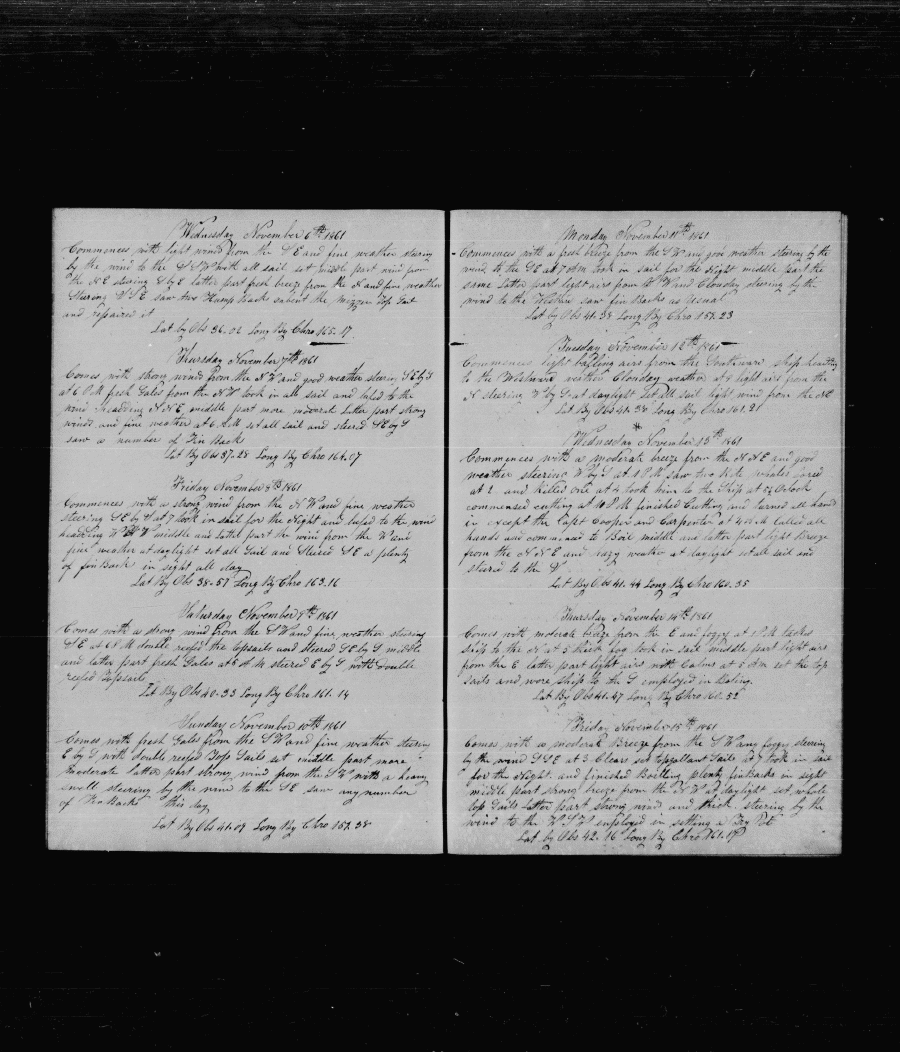 Wednesday November 6th 1861
Commences with light wind from the S E and fine weather steering
by the wind to the S S W with all sail set middle part wind from
the N E steering S by E latter part fresh breeze from the N and fine weather
Steering S S E saw two Hump back the Mizzen Top Sail
and repaired it
Lat by Obs 36-02 Long By Chro 165-17
Thursday November 7th 1861
Comes with strong wind from the N W and good weather steering S E by S
at 6 P M fresh Gales from the N W took in all sail and luffed to the
wind heading N N E middle part more moderate Latter part strong
winds and fine weather at 6 A M set all sail and steered SE by S
saw a number of Fin Back
Lat By Obs 37-28 Long By Chro 164-07
Friday November 8th 1861
Commences with a strong wind from the N W and fine weather
steering S E by S at 7 took in sail for the Night and luffed to the wind
heading W middle and Latter part the wind from the W and
fine weather at daylight set all Sail and Steered S E a plenty
of fin Back in sight all day
Lat By Obs 38-57 Long By Chro 163-16
Saturday November 9th 1861
Comes with a strong wind from the S W and fine weather steering
S E at 6 P M double reefed the topsails and steered SE by S middle
and latter part fresh Gales at 8 A M steered E by S with double
reefed Topsails
Lat By Obs 40-33 Long By Chro 161-14
Sunday November 10th 1861
Comes with fresh Gales from the S W and fine weather steering
E by S with double reefed Top Sails set middle part more
moderate latter part strong wind from the S W with a heavy
swell steering by the wind to the S E saw any number
of Fin Backs this day
Lat By Obs 41-09 Long By Chro 158-38
Monday November 11th 1861
Commences with a fresh breeze from the S W and good weather steering by the
wind to the SE at 7 P M took in sail for the Night middle part the
same Latter part light airs from the W and Clouday steering by the
wind to the saw fin Backs as usual
Lat By Obs 41-38 Long By Chro 158-23
Tuesday November 12th 1861
Commences light baffling airs from the Southward ship heading
to the Westward Clouday weather at 4 light airs from the
N steering W by S at daylight set all sail light wind from the NE
Lat By Obs 41-34 Long By Chro 161-21
Wednesday November 13th 1861
Commences with a moderate breeze from the N N E and good
weather steering W by S at 1 P M saw two Rite whales lowered
at 2 and killed one at 4 took him to the Ship at Oclock
commensed cutting at P M finished Cutting and turned all hand
in except the Capt Cooper and Carpenter at 4 oclock called all
hands and commensed to Boil middle and latter part light Breeze
from the N N E and hazy weather at daylight set all sail and
steered to the W
Lat By Obs 41-44 Long By Chro 160-35
Thursday November 14th 1861
Comes with moderate breeze from the E and foggy at 1 P M tacked
ship to the N at 5 thick fog took in sail middle part light airs
from the E latter part light airs with Calms at 5 A m set the top
sails and wore ship to the S employed in Boiling
Lat By Obs 41-47 Long By Chro 160-52
Friday November 15th 1861
Comes with a moderate Breeze from the S W and foggy steering
by the wind S S E at 3 Clears set topgallant Sails at 7 took in sail
for the Night and finished Boilling plenty finbacks in sight
middle part strong breeze from the N W at daylight set whole
top Sails Latter part strong wind and thick steering by the
wind to the W S W employed in setting a Try Pot
Lat by Obs 42-16 Long By Chro 161-19